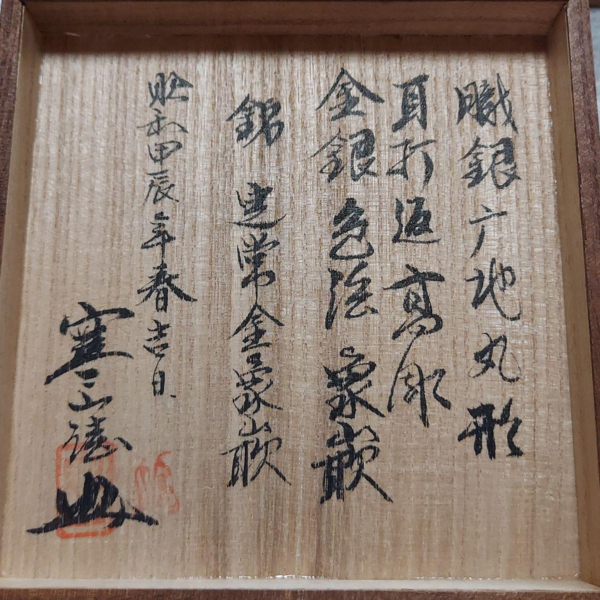 朧銀广地丸形
耳打返高彫
金銀色絵象嵌
銘 忠常金象嵌
昭和甲辰年春吉日
寒山誌